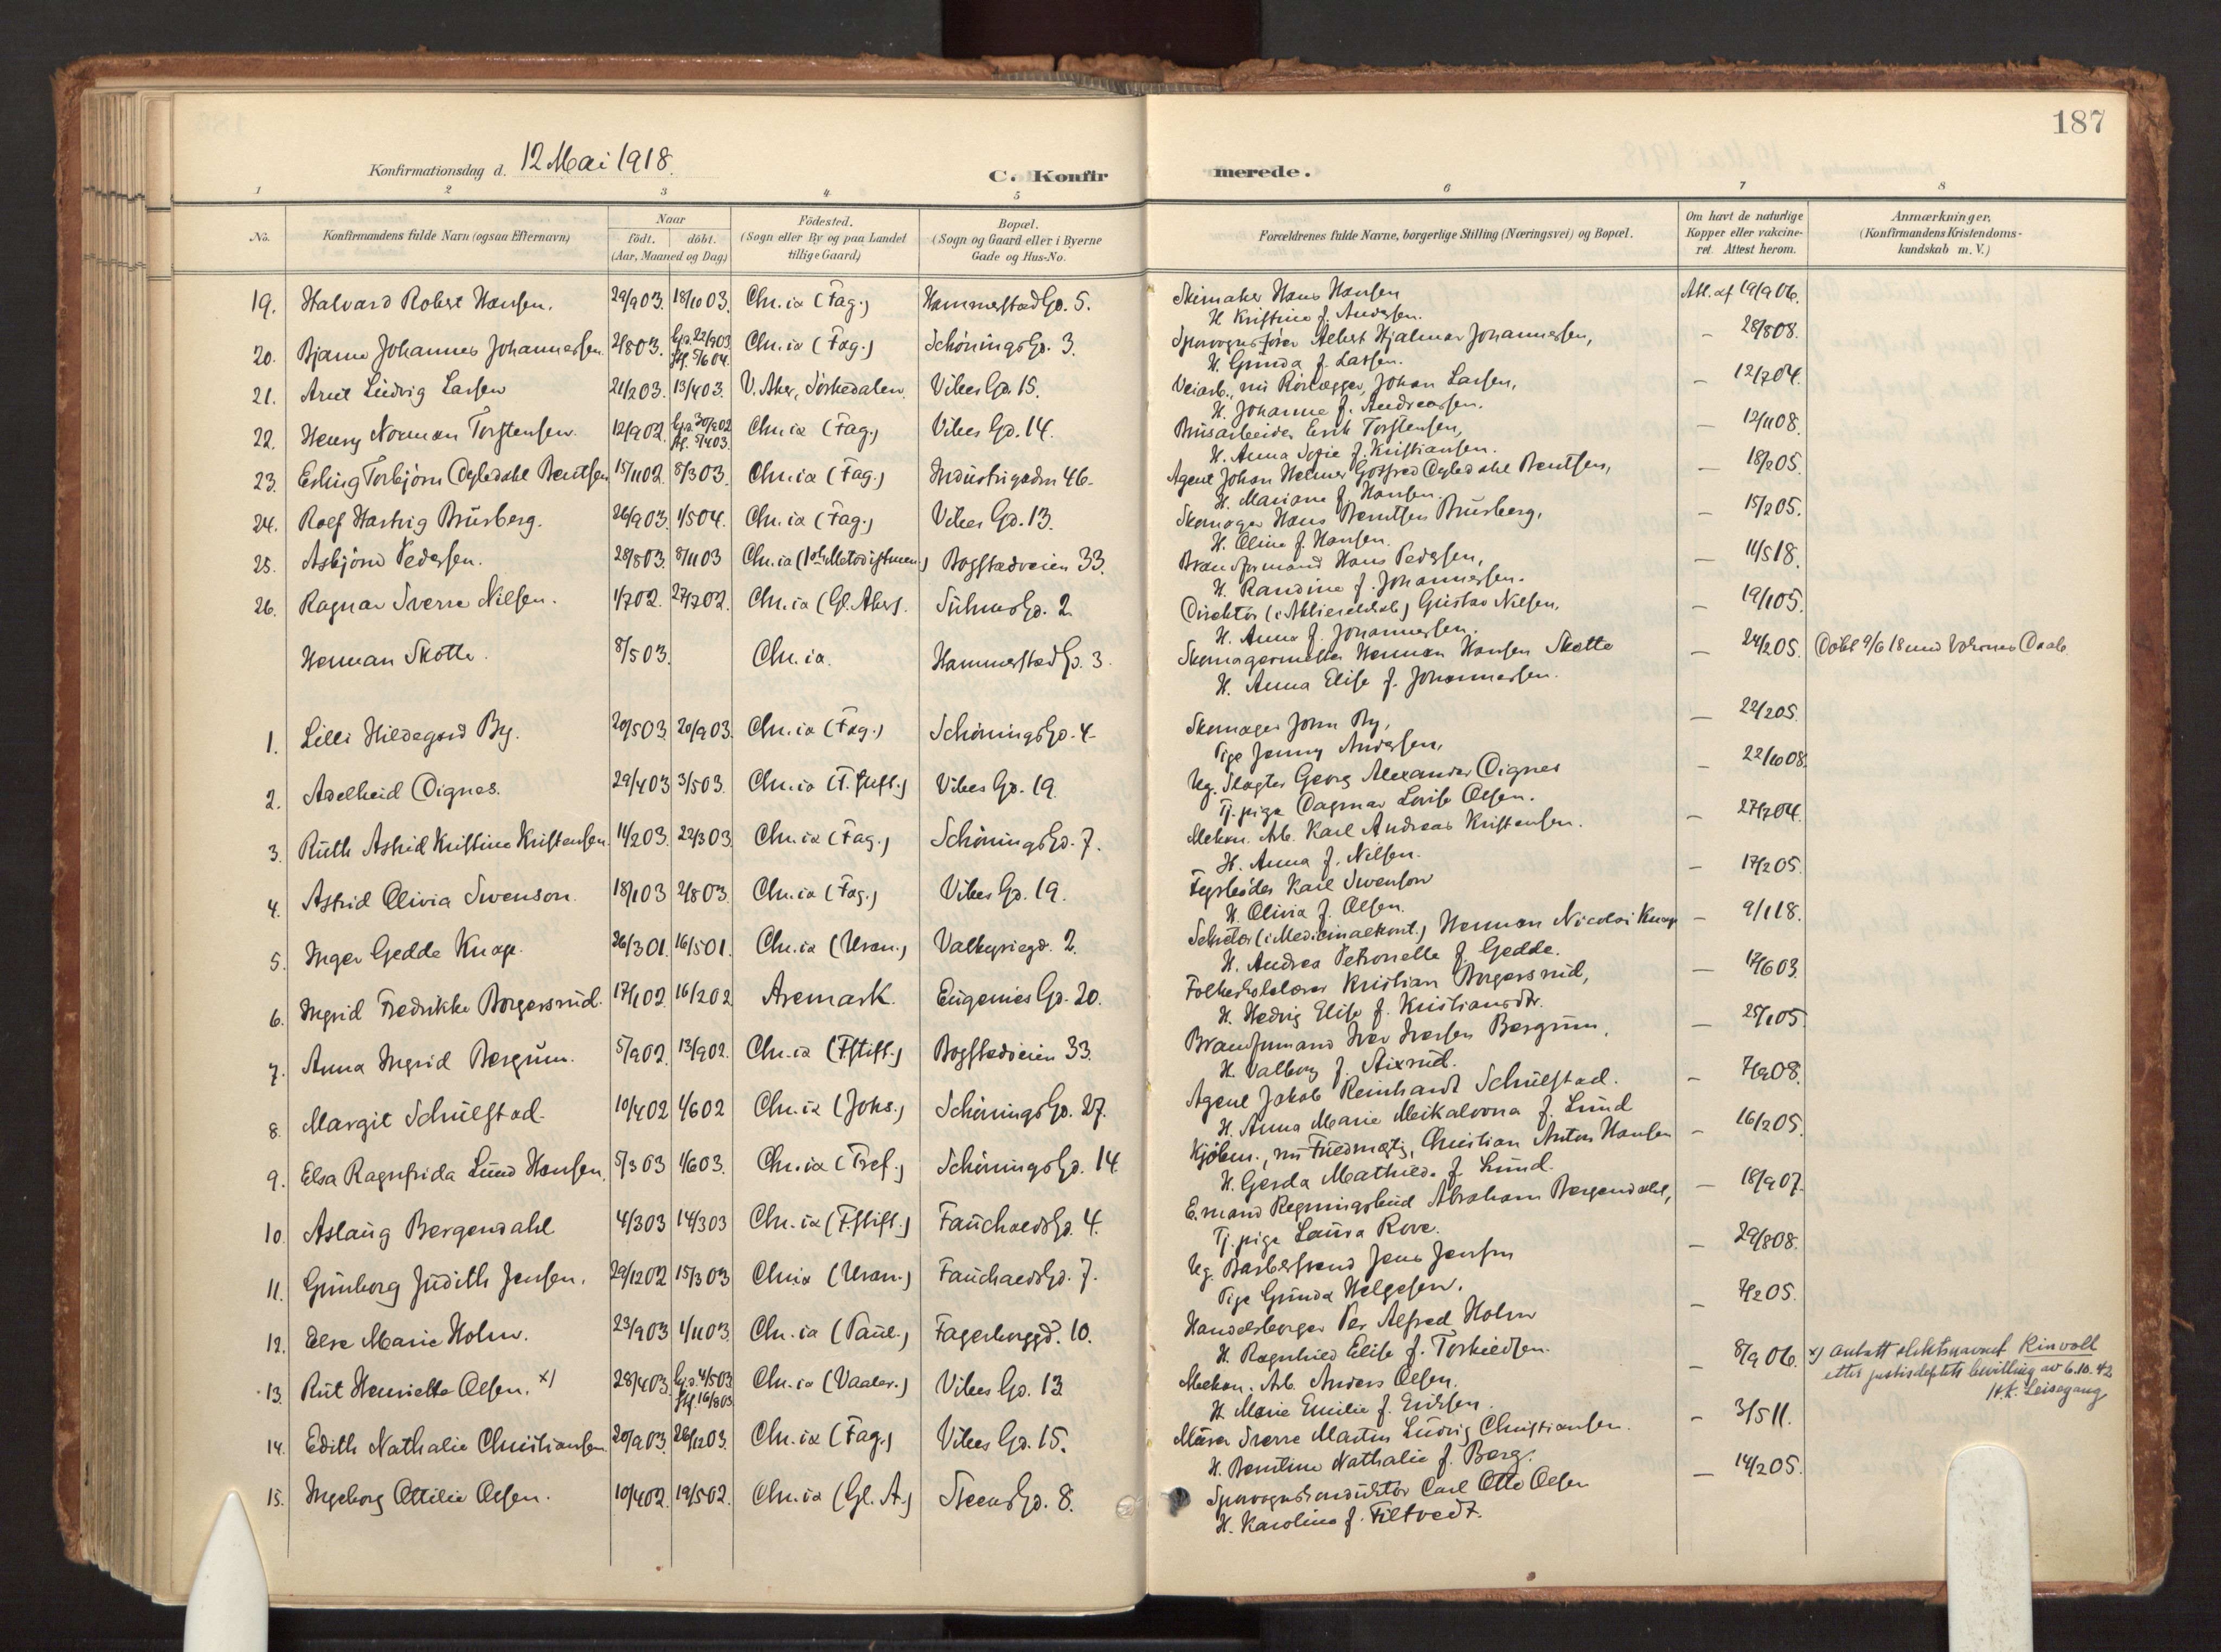 187
Konfirmationsdag d. 12 Mai 1918.
C. Konfirmerede.
1 2 3 4 5 6 7 8
No.
Konfirmandens fulde Navn (ogsaa Efternavn)
Naar
födt. döbt.
(Aar, Maaned og Dag)
Födested.
(Sogn eller By og paa Landet
tillige Gaard)
Bopæl.
(Sogn og Gaard eller i Byerne
Gade og Hus-No.
Forældrenes fulde Navne, borgerlige Stilling (Næringsvei) og Bopæl.
Om havt de naturlige
Kopper eller vakcine-
ret. Attest herom.
Anmærkninger.
(Konfirmandens Kristendoms-
kundskab m. V.)
19. Halvard Robert Hansen. 29/9 03. 18/10 03. Chr.ia (Fag.) Hammerstad Gd. 5. Hans Hansen Att. af 19/9 06.
H. Kristine f. Andersen.
20. Bjarne Johannes Johannessen. 2/8 03. Gd. 22/9 03. Chr.ia (Fag.) Schönings Gd. 3. Sporvognsfører Albert Hjalmar Johannessen, — 28/8 08.
5/6 04.
H. Gunda f. Larsen.
21. Arnt Ludvig Larsen 21/2 03. 13/4 03. V. Aker, Sörkedalen. Vibes Gd. 15. Veiarb., nu Rörlægger, Johan Larsen, — 12/7 04.
H. Johanne f. Andreassen.
22. Henry Norman Torstensen. 12/9 02. Gd. 30/9 02 Chr.ia (Fag.) Vibes Gd. 14. Brusarbeider Erik Torstensen, — 12/11 08.
5/4 03.
H. Anna Sofie f. Kristiansen.
23. Erling Torbjörn Ogledahl Berntsen 15/11 02. 8/3 03. Chr.ia (Fag.) Industrigaden 46. Agent Johan Helmer Gotfred Ogledahl Berntsen, — 18/2 05.
H. Mariane f. Hansen.
24. Rolf Hartvig Brusberg. 26/9 03. 1/5 04. Chr.ia (Fag.) Vibes Gd. 13. Skomager Hans Berntsen Brusberg, — 15/2 05.
H. Oline f. Hansen.
25. Asbjörn Pedersen. 28/8 03. 8/11 03 Chr.ia (1ste Metodistmen.) Bogstadveien 33. Brandformand Hans Pedersen, — 11/5 18.
H. Randine f. Johannessen.
26. Ragnar Sverre Nilsen. 1/7 02. 27/7 02. Chr.ia (Gl. Aker). Suhms Gd. 2. Direktör (i Aktieselskab) Gustav Nilsen, — 19/1 05.
H. Anna f. Johannessen.
Herman Skotte. 8/5 03. Chr.ia. Hammerstad Gd. 3. Skomagermester Herman Hansen Skotte — 24/2 05. Döbt 9/6 18 med Voksnes Daab
H. Anna Elise f. Johannessen.
1. Lilli Hildegard By. 20/5 03. 20/9 03. Chr.ia (Fag.) Schönings Gd. 4. Skomager John By, — 22/2 05.
Pige Jenny Andersen,
2. Adelheid Oignes. 29/4 03 3/5 03. Chr.ia (F.stift.) Vibes Gd. 19. Ug. Slagter Georg Alexander Oignes — 22/10 08.
Tj.pige Dagmar Lovise Olsen.
3. Ruth Astrid Kristine Kristensen. 14/2 03. 22/3 03. Chr.ia (Fag.) Schönings Gd. 7. Mekan. Arb. Karl Andreas Kristensen. — 27/7 04.
H. Anna f. Nilsen.
4. Astrid Olivia Svenson. 18/1 03 2/8 03. Chr.ia (Fag.) Vibes Gd. 19. Fyrböder Karl Svenson — 17/2 05.
H. Olivia f. Olsen.
5. Inger Gedde Knap. 26/3 01. 16/5 01. Chr.ia (Uran.) Valkyriegd. 2. Sekretær (i Medicinalkont.) Herman Nicolai Knap — 9/1 18.
H. Andrea Petronelle f. Gedde.
6. Ingrid Fredrikke Borgersrud. 17/1 02. 16/2 02. Aremark. Eugenies Gd. 20. Folkeskolelærer Kristian Borgersrud, — 17/6 03.
H. Hedvig Elise f. Kristiansdtr.
7. Anna Ingrid Bergum. 5/9 02. 13/9 02. Chr.ia (F.stift.) Bogstadveien 33. Brandformand Iver Iversen Bergum, — 25/1 05.
H. Valborg f. Aixrud.
8. Margit Schulstad. 10/4 02 1/6 02 Chr.ia (Johs.) Schönings Gd. 27. Agent Jakob Reinhardt Schulstad. — 7/9 08.
H. Anna Marie Meikalovna f. Lund
9. Elsa Ragnfrida Lund Hansen. 5/3 03 1/6 03. Chr.ia (Tref.) Schönings Gd. 14 Kjöbm., nu Fuldmægtig, Christian Anton Hansen — 16/2 05.
H. Gerda Mathilde f. Lund.
10. Aslaug Bergendahl 4/3 03 14/3 03 Chr.ia (F.stift.) Fauchalds Gd. 4. E.mand Regningsbud Abraham Bergendahl, — 18/9 07.
Tj.pige Laura Rove.
11. Gunborg Judith Jensen. 29/12 02 15/3 03 Chr.ia (Uran.) Fauchalds Gd. 7. Ug. Barbersvend Jens Jensen — 29/8 08.
Pige Gunda Helgesen.
12. Else Marie Holm. 23/9 03 1/11 03. Chr.ia (Paul.) Fagerborggd. 10. Handelsborger Per Alfred Holm — 7/2 05.
H. Ragnhild Elise f. Torkildsen.
13. Rut Henriette Olsen. x) 28/4 03. Gd. 4/5 03. Chr.ia (Vaaler.) Vibes Gd. 13 Mekan. Arb. Anders Olsen. — 8/9 06. x) antatt slektsnavnet Rinvoll
16/8 03.
etter justisdeptets bevilling av 6.10.42
H. Marie Emilie f. Eriksen.
H.K. Leisegang
14. Edith Nathalie Christiansen 20/9 03. 26/12 03. Chr.ia (Fag.) Vibes Gd. 15. Murer Sverre Martin Ludvig Christiansen. — 3/5 11.
H. Berntine Nathalie f. Berg.
15. Ingeborg Ottilie Olsen. 10/4 02. 19/5 02. Chr.ia (Gl. A.) Steens Gd. 8. Sporvognskonduktör Carl Otto Olsen — 14/2 05.
H. Karoline f. Filtvedt.